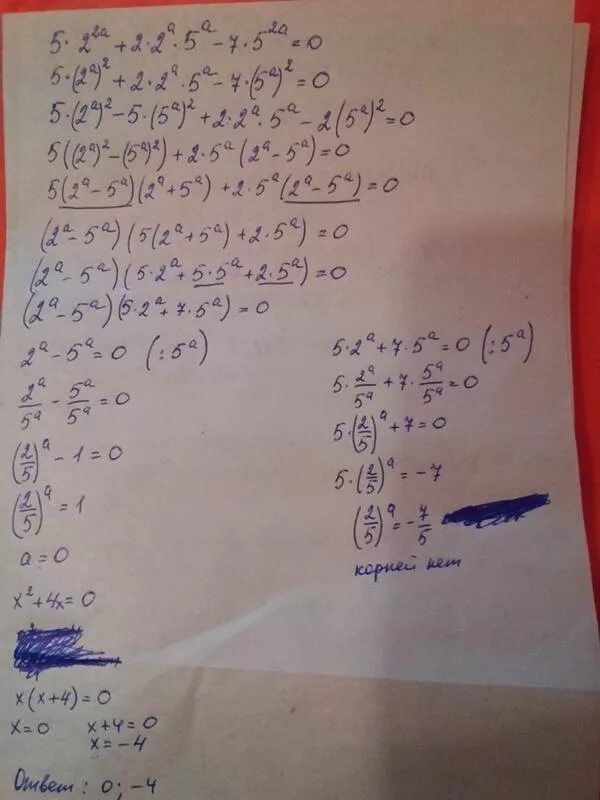 5·2^{2a} + 2·2^a·5^a − 7·5^{2a} = 0
5·(2^a)^2 + 2·2^a·5^a − 7·(5^a)^2 = 0
5·(2^a)^2 − 5·(5^a)^2 + 2·2^a·5^a − 2(5^a)^2 = 0
5((2^a)^2 − (5^a)^2) + 2·5^a(2^a − 5^a) = 0
5(2^a − 5^a)(2^a + 5^a) + 2·5^a(2^a − 5^a) = 0
(2^a − 5^a)(5(2^a + 5^a) + 2·5^a) = 0
(2^a − 5^a)(5·2^a + 5·5^a + 2·5^a) = 0
(2^a − 5^a)(5·2^a + 7·5^a) = 0
2^a − 5^a = 0 (:5^a)
2^a/5^a − 5^a/5^a = 0
(2/5)^a − 1 = 0
(2/5)^a = 1
a = 0
x^2 + 4x = 0
x(x+4) = 0
x = 0 x+4 = 0
x = −4
5·2^a + 7·5^a = 0 (:5^a)
5·2^a/5^a + 7·5^a/5^a = 0
5·(2/5)^a + 7 = 0
5·(2/5)^a = −7
(2/5)^a = −7/5
корней нет
Ответ: 0; −4